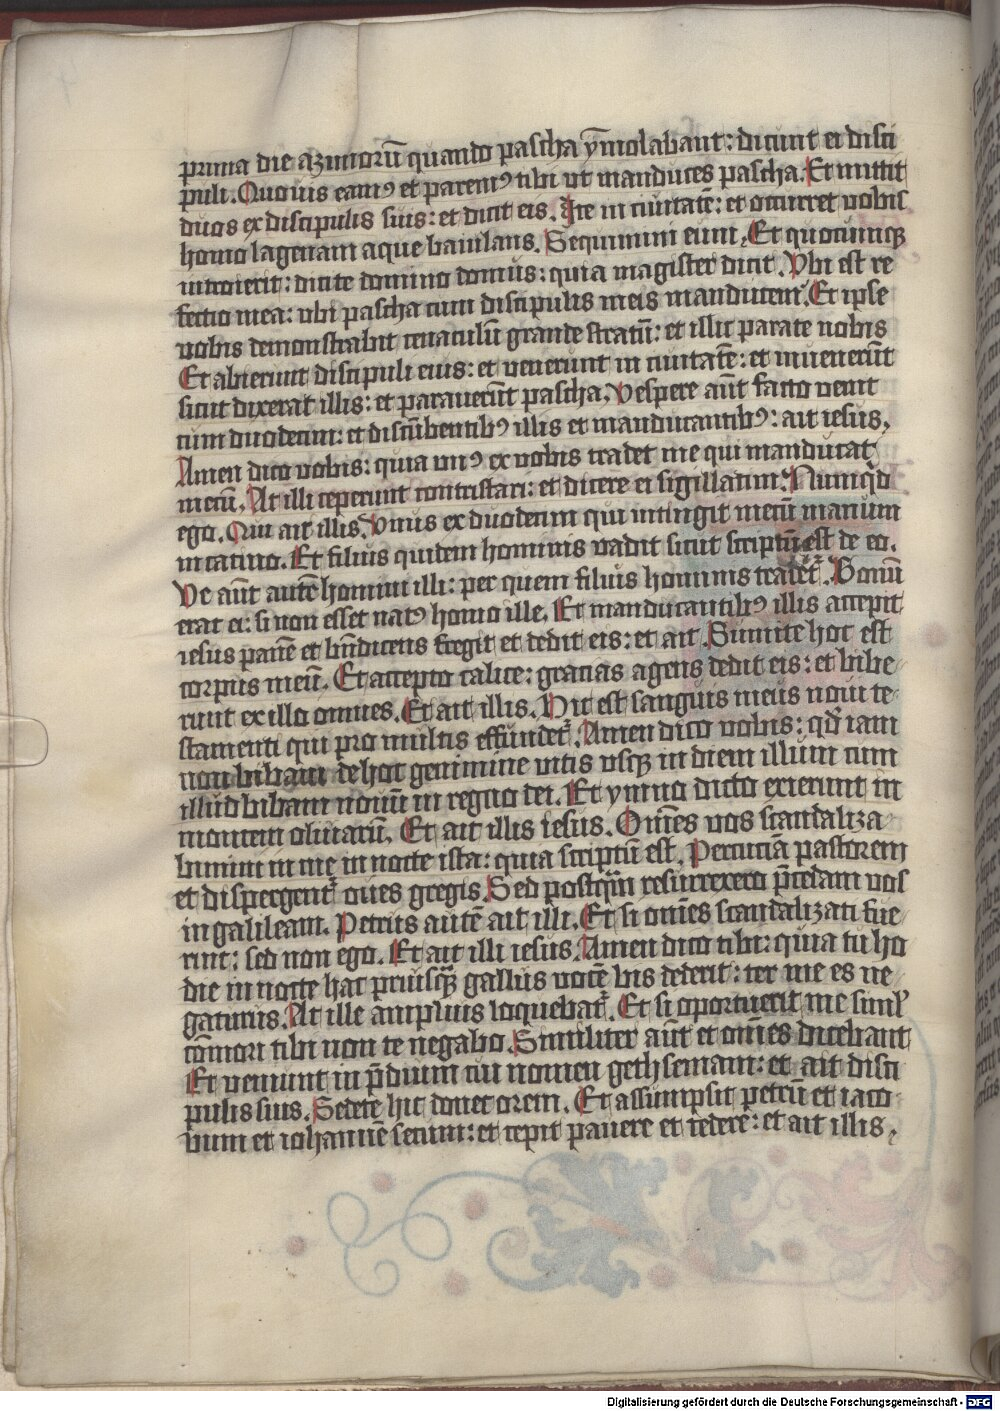 prima die azimorū quando pascha ȳmolabant: dicunt ei disci
puli. Quo vis eamꝰ et paremꝰ tibi vt manduces pascha. Et mittit
duos ex discipulis suis: et dicit eis. Ite in ciuitatē: et occurret vobis
homo lagenam aque baiulans. Sequimini eum, Et quocumqꝫ
introierit: dicite domino domus: quia magister dicit. Vbi est re
fectio mea: vbi pascha cum discipulis meis manducem. Et ipse
vobis demonstrabit cenaculū grande stratū: et illic parate nobis
Et abierunt discipuli eius: et venerunt in ciuitatē: et inuenerūt
sicut dixerat illis: et parauerūt pascha. Vespere aūt facto venit
cum duodecim: et discūbentibꝰ illis et manducantibꝰ: ait iesus,
Amen dico vobis: quia vnꝰ ex vobis tradet me qui manducat
mecū, At illi ceperunt contristari: et dicere ei sigillatim. Numqd̄
ego. Qui ait illis. Vnus ex duodecim qui intingit mecū manum
in catino. Et filius quidem hominis vadit sicut scriptū est de eo.
Ve aūt autē homini illi: per quem filius hominis tradet᷑. Bonū
erat ei: si non esset natꝰ homo ille, Et manducantibꝰ illis accepit
iesus panē et bn̄dicens fregit et dedit eis: et ait. Sumite hoc est
corpus meū. Et accepto calice: gracias agens dedit eis: et bibe
runt ex illo omnes. Et ait illis. Hic est sanguis meus noui te
stamenti qui pro multis effundet᷑. Amen dico vobis: qd̄ iam
non bibam de hoc genimine vitis vsqꝫ in diem illum cum
illud bibam nouū in regno dei. Et ymno dicto exierunt in
montem oliuarū. Et ait illis iesus. Om̄es vos scandaliza
bimini in me in nocte ista: quia scriptū est. Percuciā pastorem
et dispergent᷑ oues gregis. Sed postqm̄ resurrexero p̄cedam vos
in galileam. Petrus autē ait illi. Et si om̄es scandalizati fue
rint: sed non ego. Et ait illi iesus. Amen dico tibi: quia tu ho
die in nocte hac priusqꝫ gallus vocē bis dederit: ter me es ne
gaturus. At ille amplius loquebat᷑. Et si oportuerit me siml̄
cōmori tibi non te negabo. Similiter aūt et om̄es dicebant
Et veniunt in p̄dium cui nomen gethsemani: et ait disci
pulis suis. Sedete hic donec orem. Et assumpsit petrū et iaco
bum et iohannē secum: et cepit pauere et tedere: et ait illis,
Digitalisierung gefördert durch die Deutsche Forschungsgemeinschaft - DFG